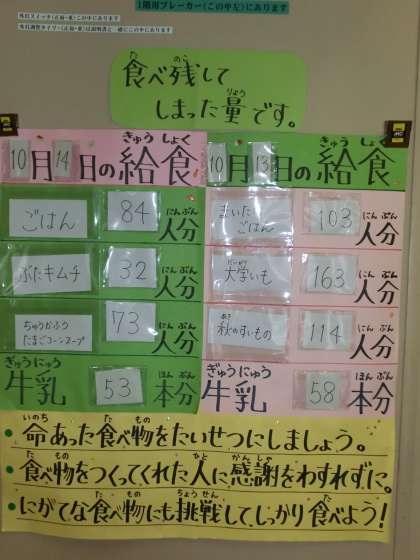 1階用ブレーカー(この中左)にあります
外灯スイッチ(正面・東)この中にあります
外灯調整タイマー(正面・東)は説明書と一緒にこの中にあります
食べ残して
しまった量です。
10月14日の給食
ごはん 84人分
ぶたキムチ 32人分
ちゅうかふう
たまごコーンスープ 73人分
牛乳 53本分
10月13日の給食
まいたけ
ごはん 103人分
大学いも 163人分
秋のすいもの 114人分
牛乳 58本分
命あった食べ物をたいせつにしましょう。
食べ物をつくってくれた人に感謝をわすれずに。
にがてな食べ物にも挑戦して、しっかり食べよう!